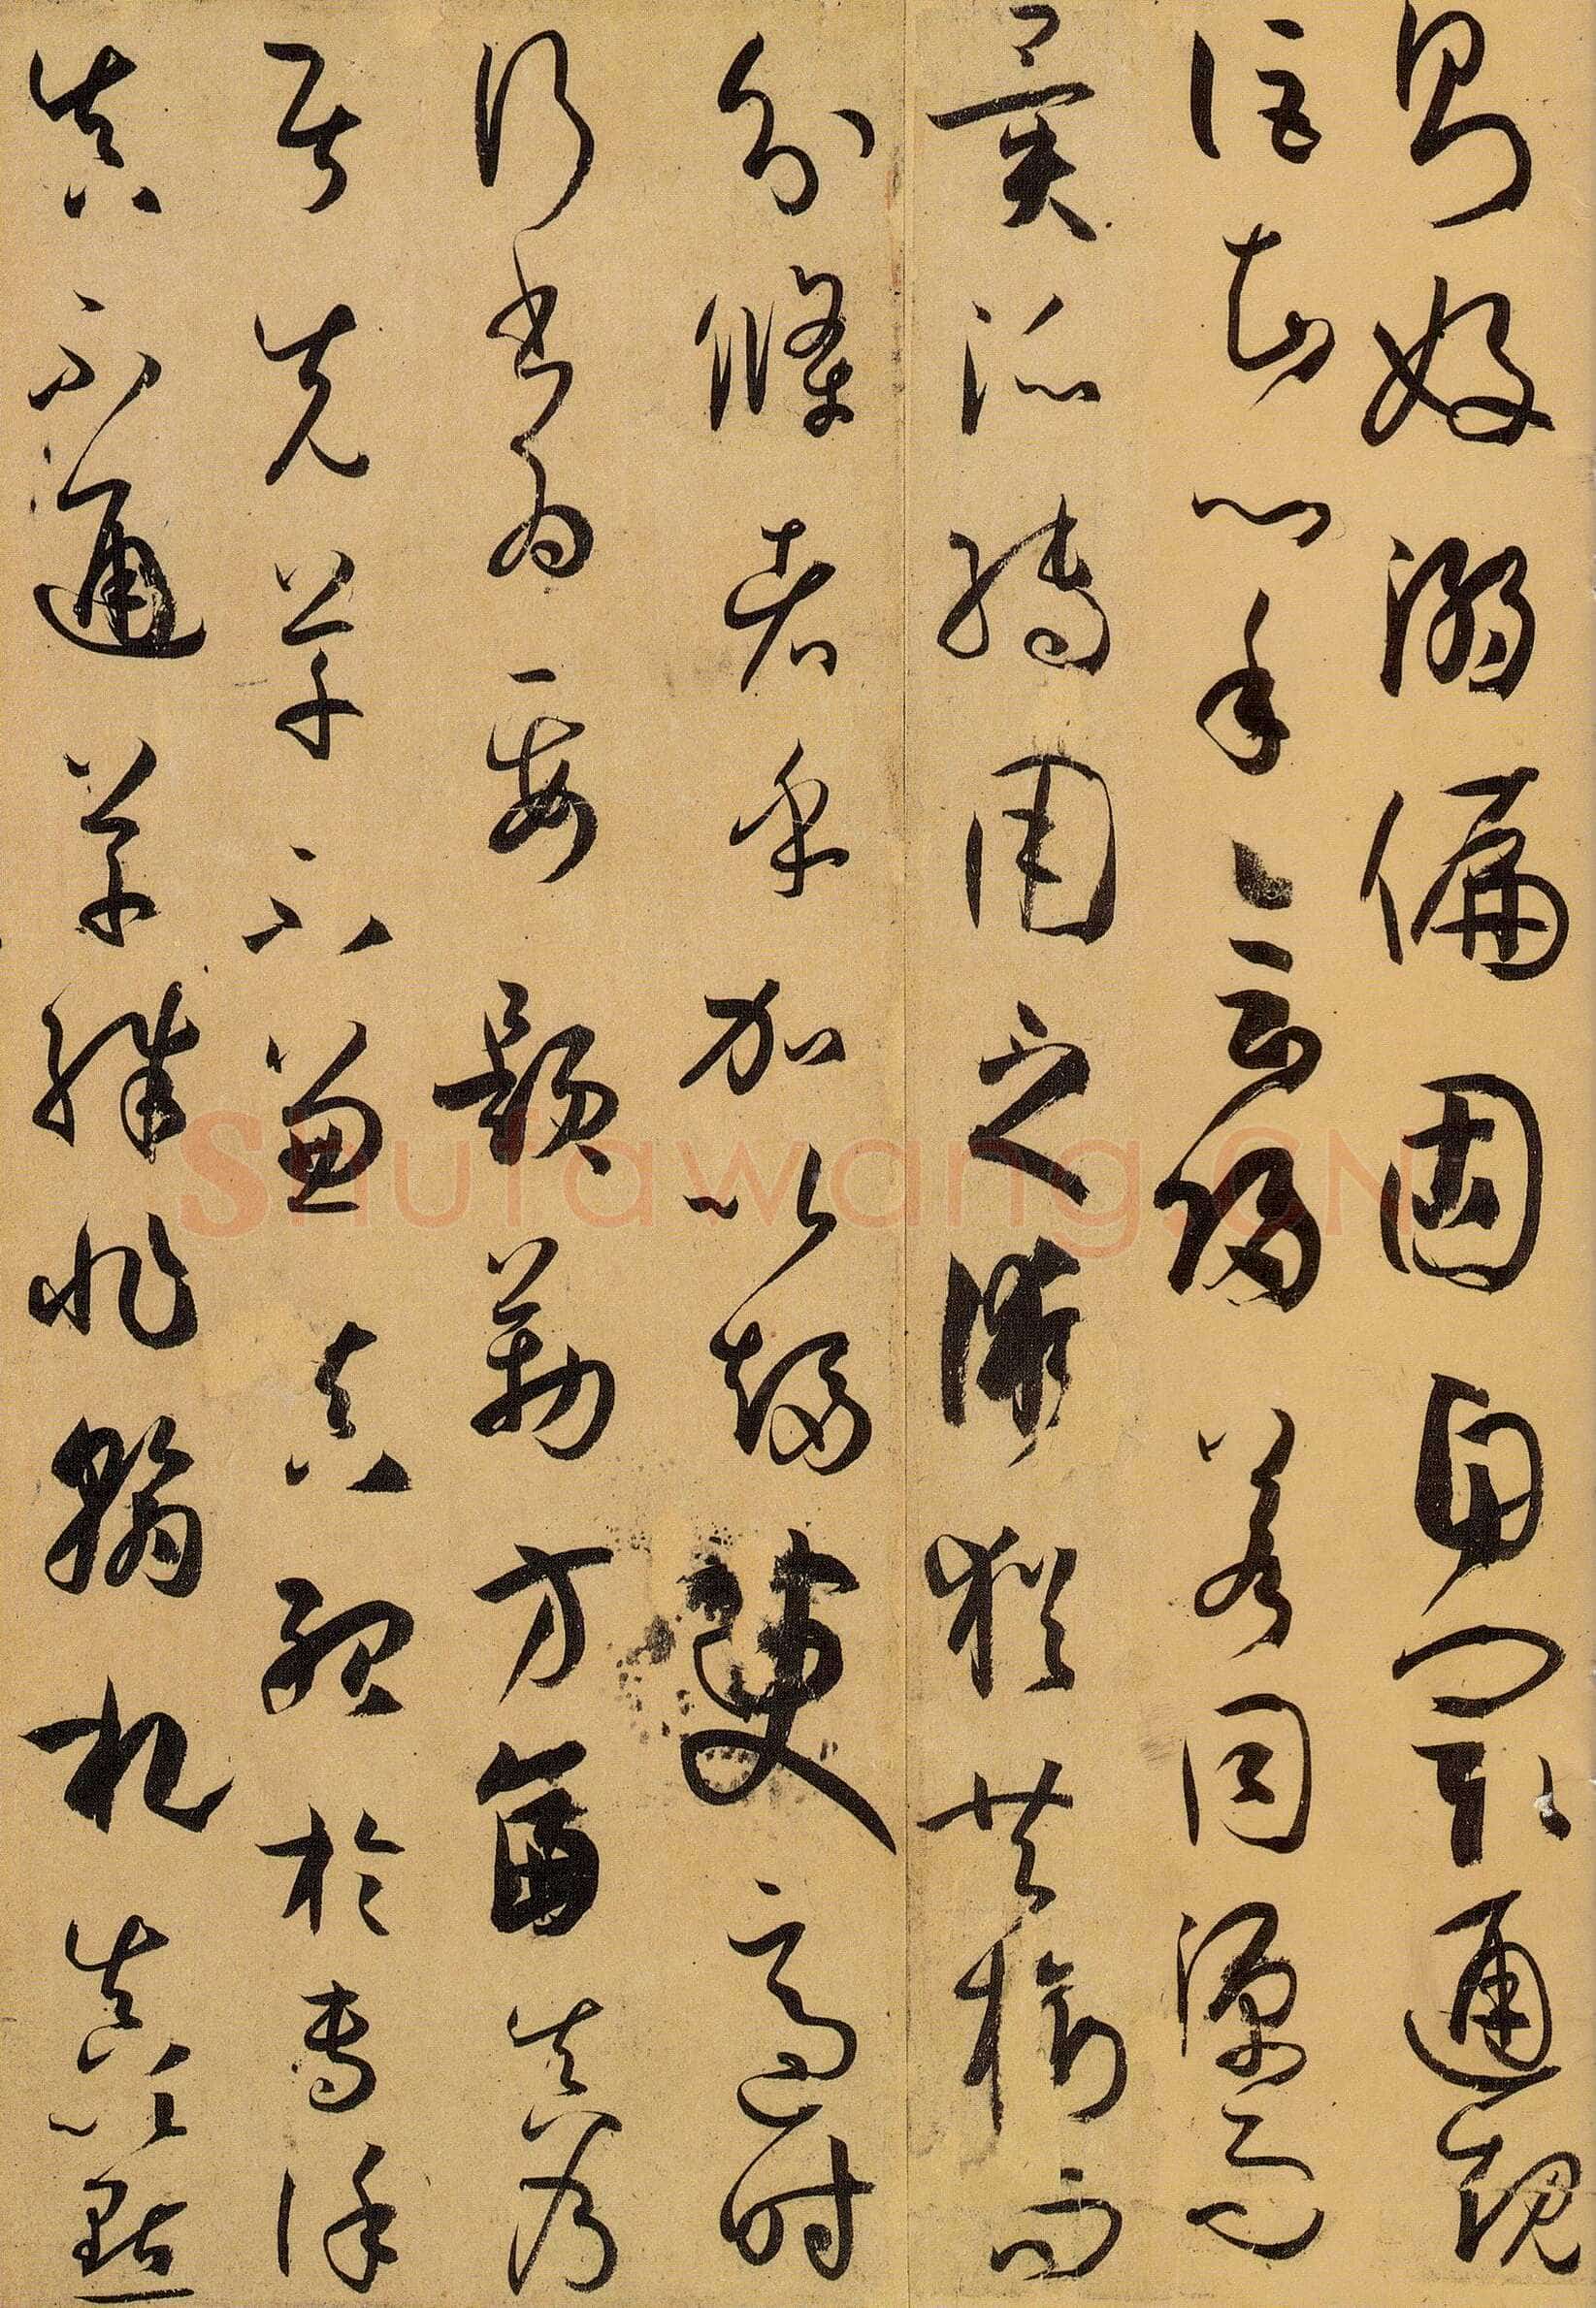 則好溺偏固自閡通規
詎知心手會歸若同源而
異派轉用之術猶共樹而
分條者乎加以趨變適時
行書為要題勒方畐真乃
居先草不兼真殆於專謹
真不通草殊非翰札真以點
Shufawang.CN